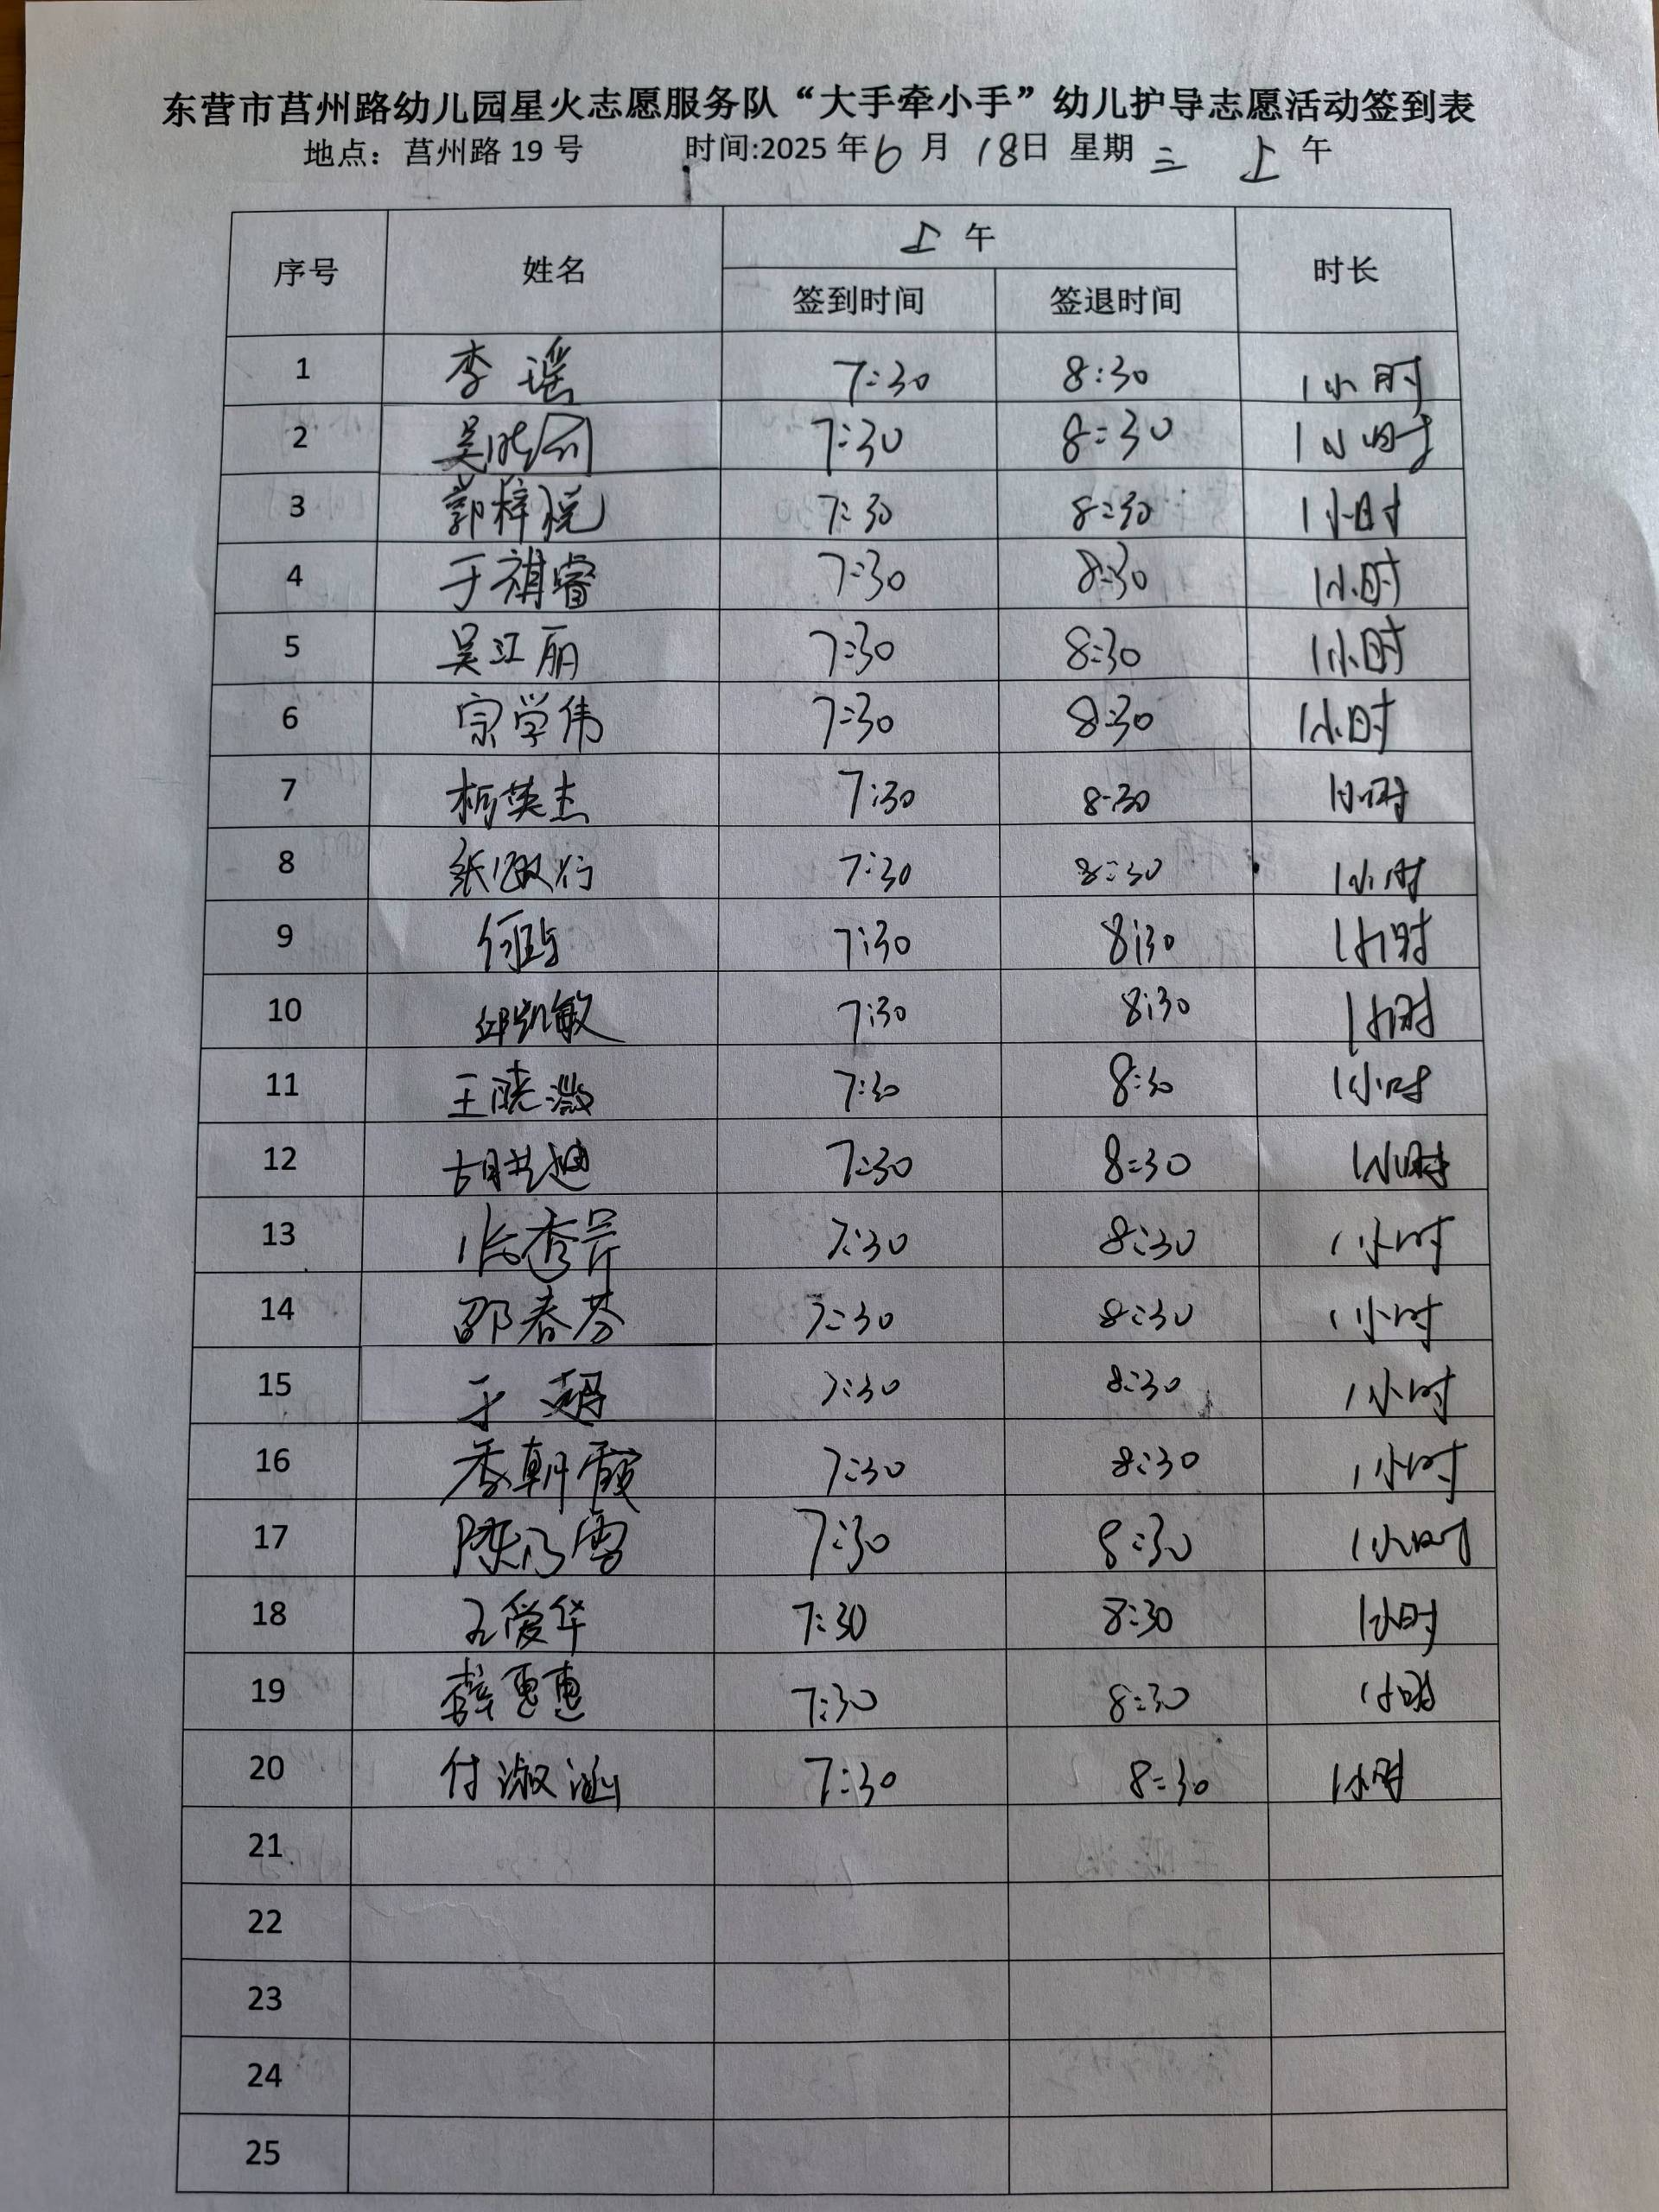 东营市莒州路幼儿园星火志愿服务队“大手牵小手”幼儿护导志愿活动签到表
地点：莒州路 19 号 时间:2025 年 6 月 18日 星期 三 上 午
序号 姓名 上 午 时长
签到时间 签退时间
1 李瑶 7:30 8:30 1小时
2 吴 7:30 8:30 1小时
3 郭梓悦 7:30 8:30 1小时
4 于祺睿 7:30 8:30 1小时
5 吴江丽 7:30 8:30 1小时
6 宗学伟 7:30 8:30 1小时
7 英杰 7:30 8:30 1小时
8 7:30 8:30 1小时
9 7:30 8:30 1小时
10 邱凯敏 7:30 8:30 1小时
11 王晓 7:30 8:30 1小时
12 胡 迪 7:30 8:30 1小时
13 张秀芹 7:30 8:30 1小时
14 邵春芬 7:30 8:30 1小时
15 于 7:30 8:30 1小时
16 季朝霞 7:30 8:30 1小时
17 陈乃雪 7:30 8:30 1小时
18 王爱华 7:30 8:30 1小时
19 薛惠惠 7:30 8:30 1小时
20 付淑涵 7:30 8:30 1小时
21
22
23
24
25